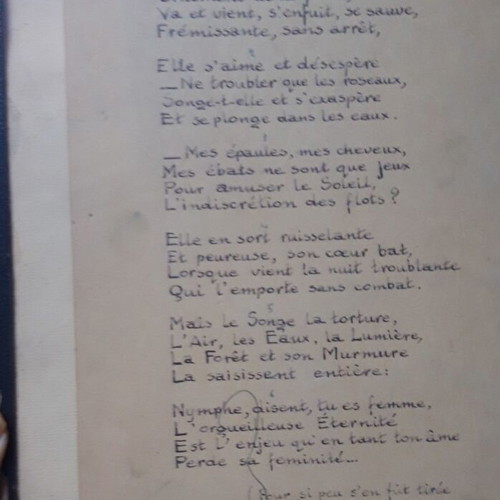 Va et vient, s'enfuit, se sauve,
Frémissante, sans arrêt,
Elle s'aime et désespère
— Ne troubler que les roseaux,
Songe-t-elle et s'exaspère
Et se plonge dans les eaux.
— Mes épaules, mes cheveux,
Mes ébats ne sont que jeux
Pour amuser le Soleil,
L'indiscrétion des flots ?
Elle en sort ruisselante
Et peureuse, son cœur bat,
Lorsque vient la nuit troublante
Qui l'emporte sans combat.
5
Mais le Songe la torture,
L'Air, les Eaux, la Lumière,
La Forêt et son Murmure
La saisissent entière :
Nymphe, disent, tu es femme,
L'orgueilleuse Éternité
Est l'enjeu qu'en tant ton âme
Perde sa feminité...
Pour si peu s'en fût tirée